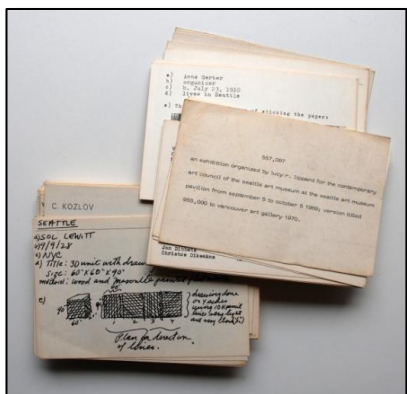 a) Anne Gerber
b) organizer
c) b. July 23, 1910
d) lives in Seattle
e) Th of sticking the paper:
557,087
an exhibition organized by lucy r. lippard for the contemporary
art council of the seattle art museum at the seattle art museum
pavilion from september 5 to october 5 1969; version titled
955,000 to vancouver art gallery 1970.
Jan Dibbets
Christos Dikeakos
C. KOZLOV
SEATTLE
a) SOL LEWITT
b) 9/9/28
c) NYC
d) Title: 3D unit with draw
size: 60"x60"x90"
method: wood and
e)
drawing done
on 4 sides
using 10H pencil
lines very light
and very close
90"
60"
1 2 3 4
Plan for direction
of lines.